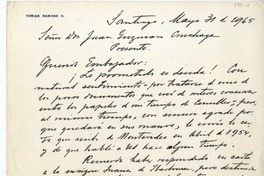 CARLOS MORENO M.
Santiago, Mayo 30 de 1965
Señor Don Juan Guzman Cruchaga
Presente.
Querido Embajador:
¡Lo prometido es deuda! Con
natural sentimiento, por tratarse de uno de
los pocos documentos que creí de interés conservar
entre los papeles de mis tiempos de Canciller, pero,
al mismo tiempo, con sincero agrado por-
que quedará en sus manos, le envío la
que recibí de Montevideo en Abril de 1954,
y de que hablé a Ud hace algún tiempo.
Recuerdo haber respondido en carta
a la insigne Juana de Ibarbourou, pero